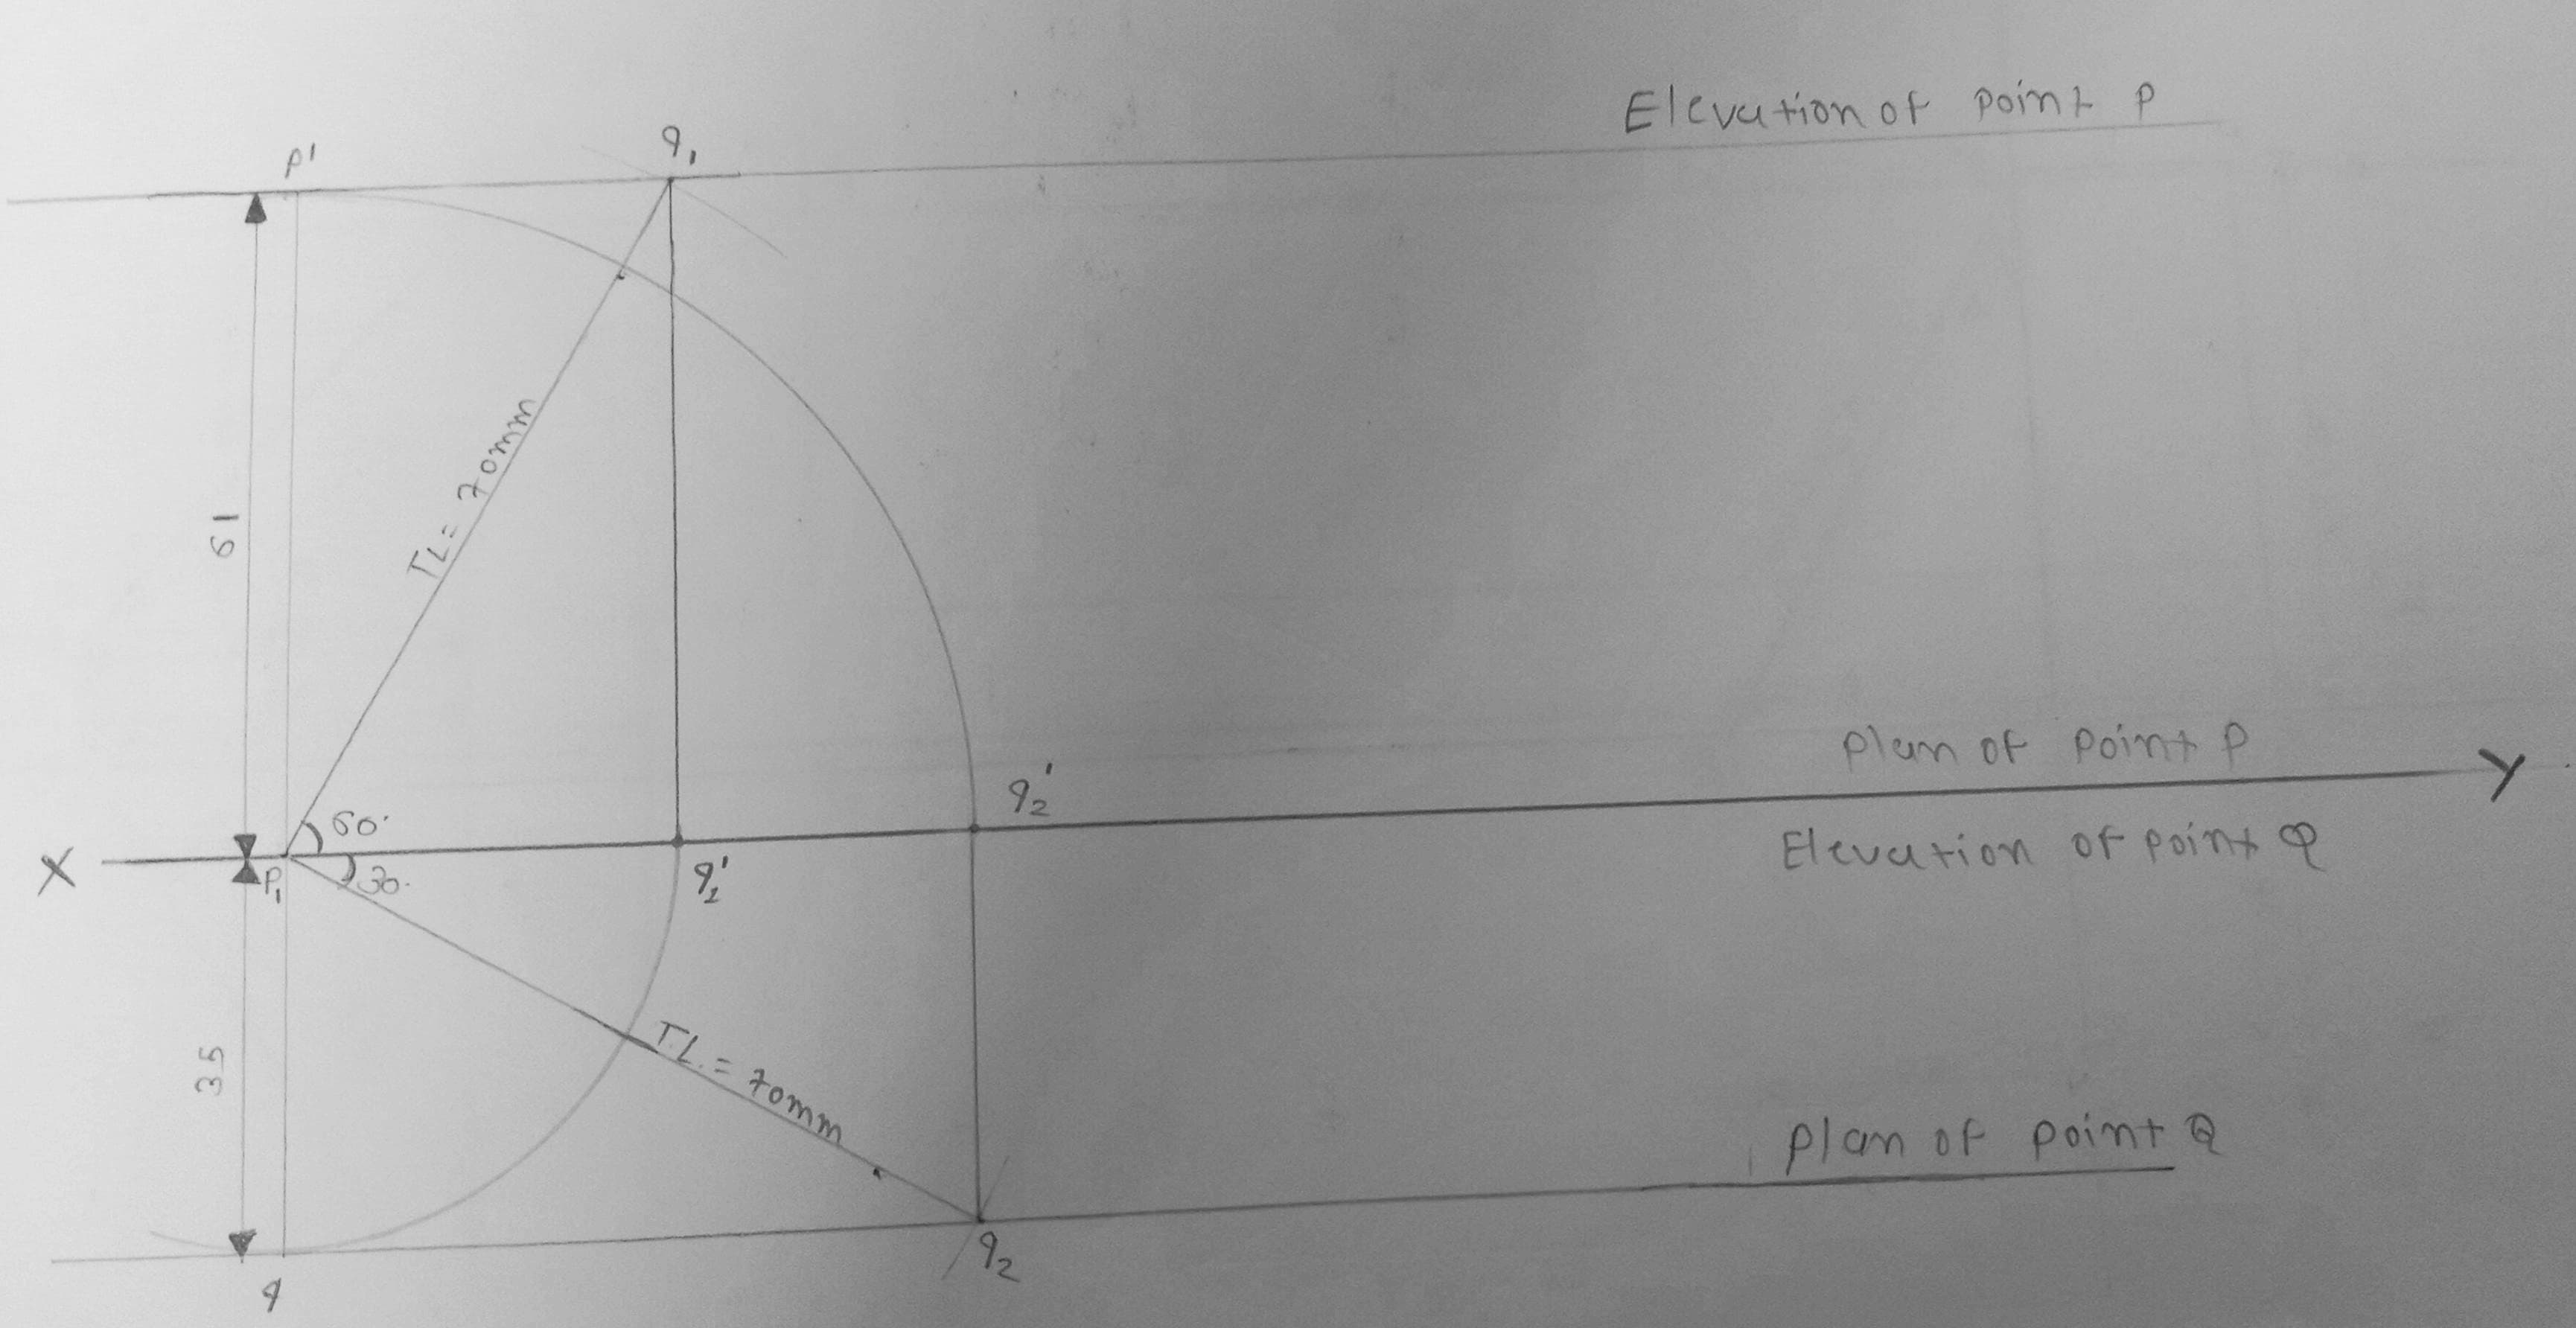 Elevation of point P
p'
q₁
TL= 70mm
61
plan of point P
Y
q₂'
60°
X
P₁
30°
q₁'
Elevation of point Q
T.L. = 70mm
35
plan of point Q
q₂
q